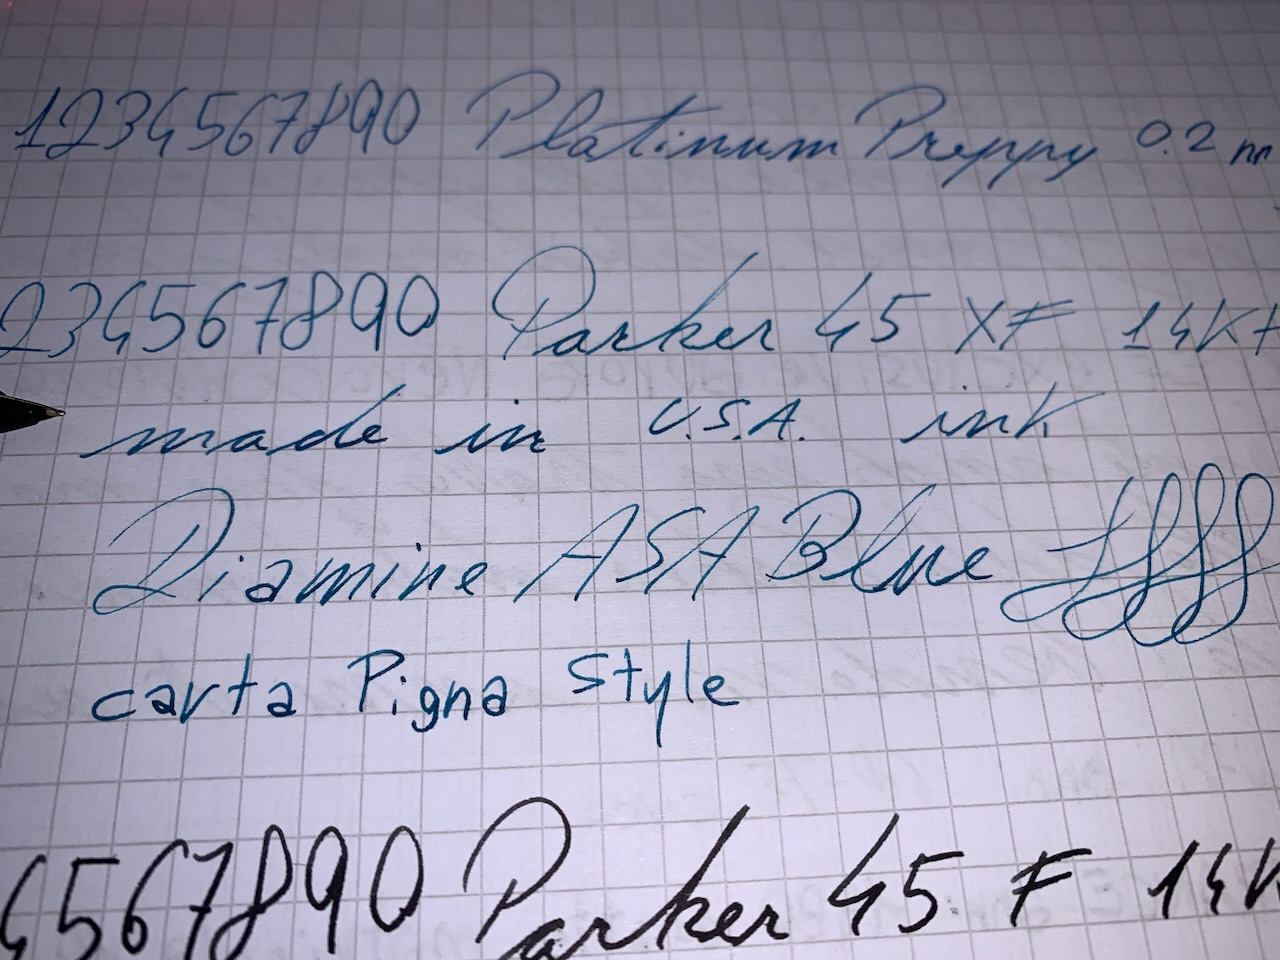 1234567890 Platinum Preppy 0.2
234567890 Parker 45 XF 14K
made in U.S.A. ink
Diamine ASA Blue
carta Pigna Style
4567890 Parker 45 F 14K